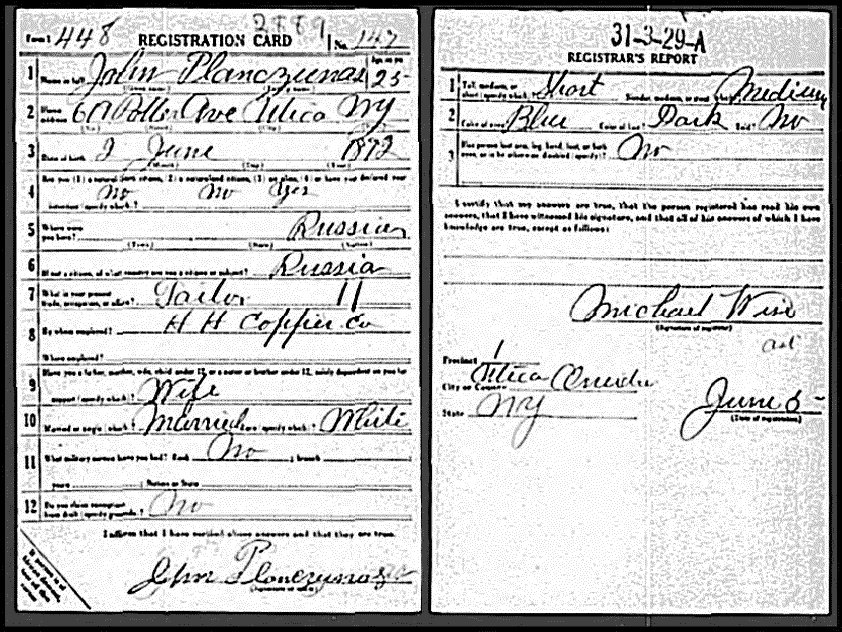 Form 1 448 REGISTRATION CARD 2889 No. 147
1 Name in full John Planczunas Age, in yrs. 25
(Given name) (Family name)
2 Home address Potter Ave Utica NY
(No.) (Street) (City) (State)
3 Date of birth 2 June
(Month) (Day) (Year)
4 Are you (1) a natural born citizen, (2) a naturalized citizen, (3) an alien, (4) or have you declared your
intention (specify which)? no no yes
5 Where were you born? Russia
(Town) (State) (Nation)
6 If not a citizen, of what country are you a citizen or subject? Russia
7 What is your present trade, occupation, or office? Tailor 11
8 By whom employed? H H Copper Co
Where employed?
9 Have you a father, mother, wife, child under 12, or a sister or brother under 12, solely dependent on you for
support (specify which)? Wife
10 Married or single (which)? Married Race (specify which)? White
11 What military service have you had? Rank No ; branch
years ; Nation or State
12 Do you claim exemption from draft (specify grounds)? No
I affirm that I have verified above answers and that they are true.
John Planczunas
(Signature or mark)
31-3-29-A
REGISTRAR'S REPORT
1 Tall, medium, or short (specify which)? Short Slender, medium, or stout (which)? Medium
2 Color of eyes? Blue Color of hair? Dark Bald? No
3 Has person lost arm, leg, hand, foot, or both eyes, or is he otherwise disabled (specify)? No
I certify that my answers are true, that the person registered has read his own
answers, that I have witnessed his signature, and that all of his answers of which I have
knowledge are true, except as follows:
Michael Wise
(Signature of registrar)
Precinct 1
City or County Utica Oneida
State NY
June 5
(Date of registration)